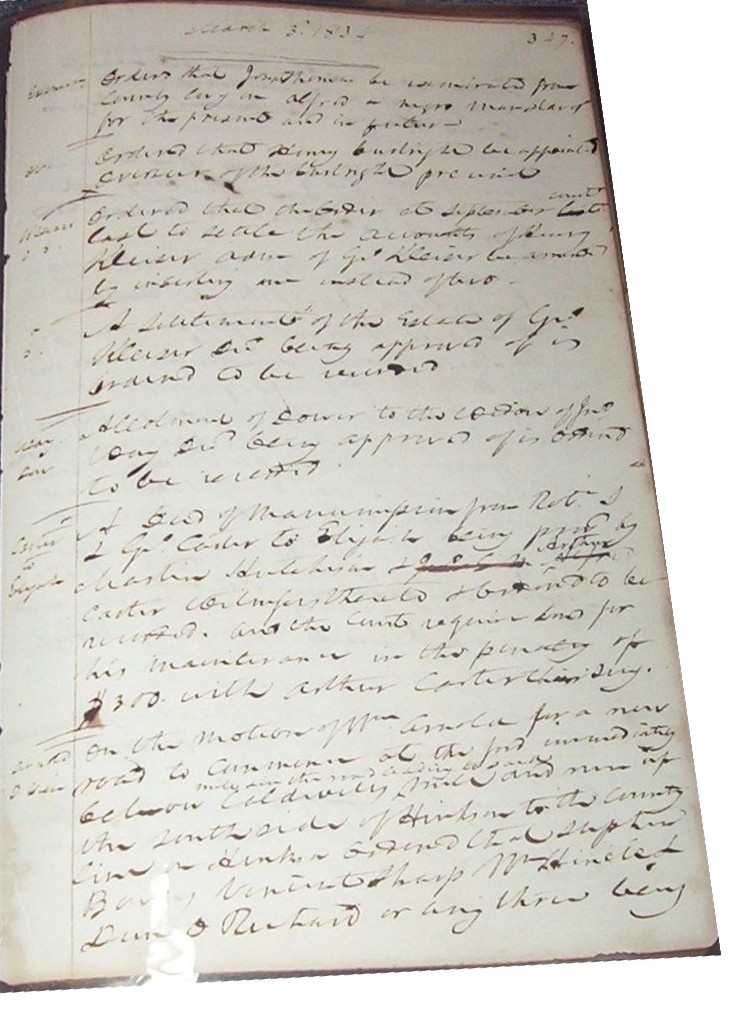 March 3d. 1834
327.
Ordered that Jno. Thomas be exonerated from
County levy on Alfred a negro man slave
for the present and in future
Ordered that Henry be appointed
Overseer of the precinct
Ordered that the order at September court
last to settle the accounts of Henry
Kleiser Admr of Go. Kleiser be amended
by inserting one instead of two.
A settlement of the Estate of Go.
Kleiser Decd. being approved of is
ordered to be recorded
Allotment of Dower to the widow of Jno.
Decd. being approved of is ordered
to be recorded
Carter
to
Elijah
A Deed of Manumission from Robt. &
Go. Carter to Elijah being proved by
Martin Hutchison & Arthur
Carter Witnesses thereto & ordered to be
recorded. and the Court require bond for
his maintenance in the penalty of
$300. with Arthur Carter his Secy.
On the motion of Wm Arnold for a new
road to commence at the ford immediately
below Coldwells mill and run up
on the road leading
the south side of Hinkson to the County
line on Hinkson Ordered that Stephen
Vincent Sharp Wm
& Richard or any three being